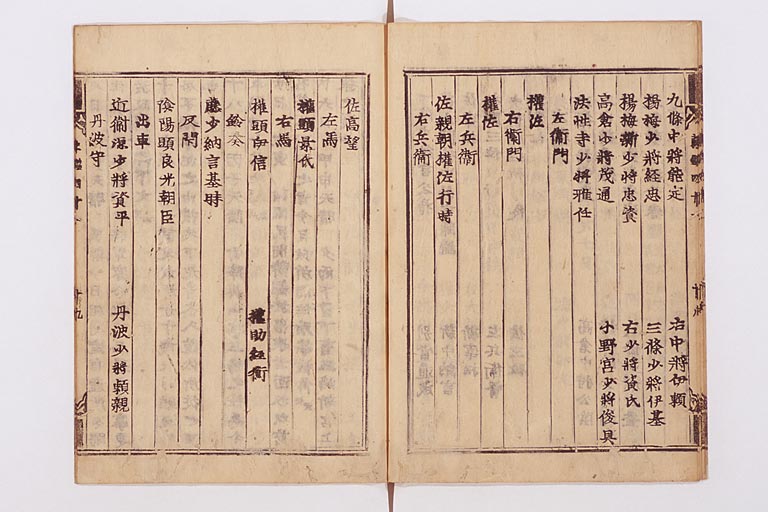 九條中將能定 右中將伊頼
楊梅少將経忠 三條少將伊基
楊梅新少將忠資 右少將資氏
高倉少將茂通 小野宮少將俊具
法性寺少將雅任
左衛門
權佐
右衛門
權佐
左兵衛
佐親朝權佐行時
右兵衛
佐高望
左馬
權頭景氏
右馬
權頭 信 權助経衡
鈴奏
少納言基時
反閇
陰陽頭良光朝臣
出車
近衛 少將資平 丹波少將頼親
丹波守